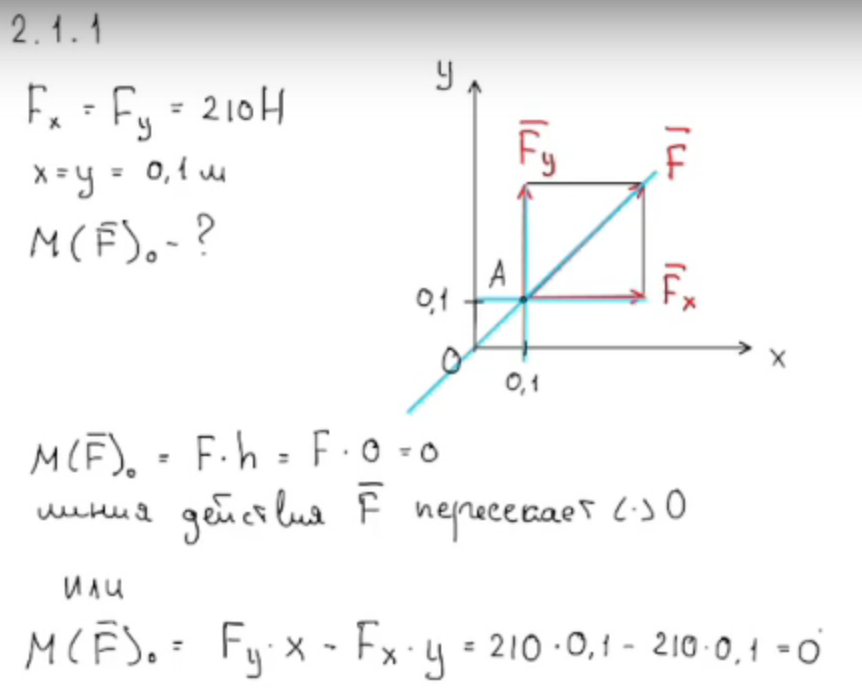 2.1.1
Fₓ = Fᵧ = 210 Н
x = y = 0,1 м
M(F̄)₀ - ?
y
F̄ᵧ
F̄
A
F̄ₓ
0,1
O
x
0,1
M(F̄)₀ = F·h = F·0 = 0
линия действия F̄ пересекает (·) O
или
M(F̄)₀ = Fᵧ·x - Fₓ·y = 210·0,1 - 210·0,1 = 0